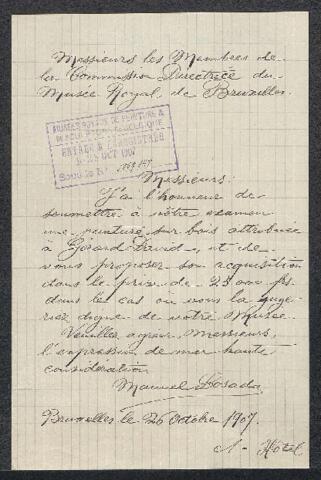 Messieurs les Membres de
la Commission Directrice du
Musée Royal de Bruxelles.
MUSÉES ROYAUX DE PEINTURE &
DE SCULPTURE DE BELGIQUE
ENTRÉE & ENREGISTRÉE
OCT 1907
SOUS LE N°
Messieurs:
J'ai l'honneur de
soumettre à vôtre examen
une peinture sur bois attribuée
à Gérard David, et de
vous proposer son acquisition
dans le prix de 25 000 frs
dans les cas ou vous la juge-
riez digne de votre Musée.
Veuillez agréer, Messieurs,
l'expression de mer haute
consideration
Manuel Losada
Bruxelles le 26 Octobre 1907.
Hôtel